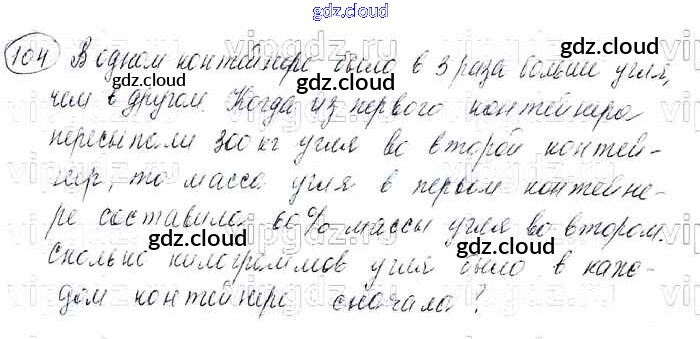 gdz.cloud
104 В одном контейнере было в 3 раза больше угля,
чем в другом. Когда из первого контейнера
пересыпали 300 кг угля во второй контей-
нер, то масса угля в первом контейне-
ре составила 60% массы угля во втором.
Сколько килограммов угля было в каж-
дом контейнере сначала?
gdz.cloud
gdz.cloud
gdz.cloud
gdz.cloud
gdz.cloud
gdz.cloud
gdz.cloud